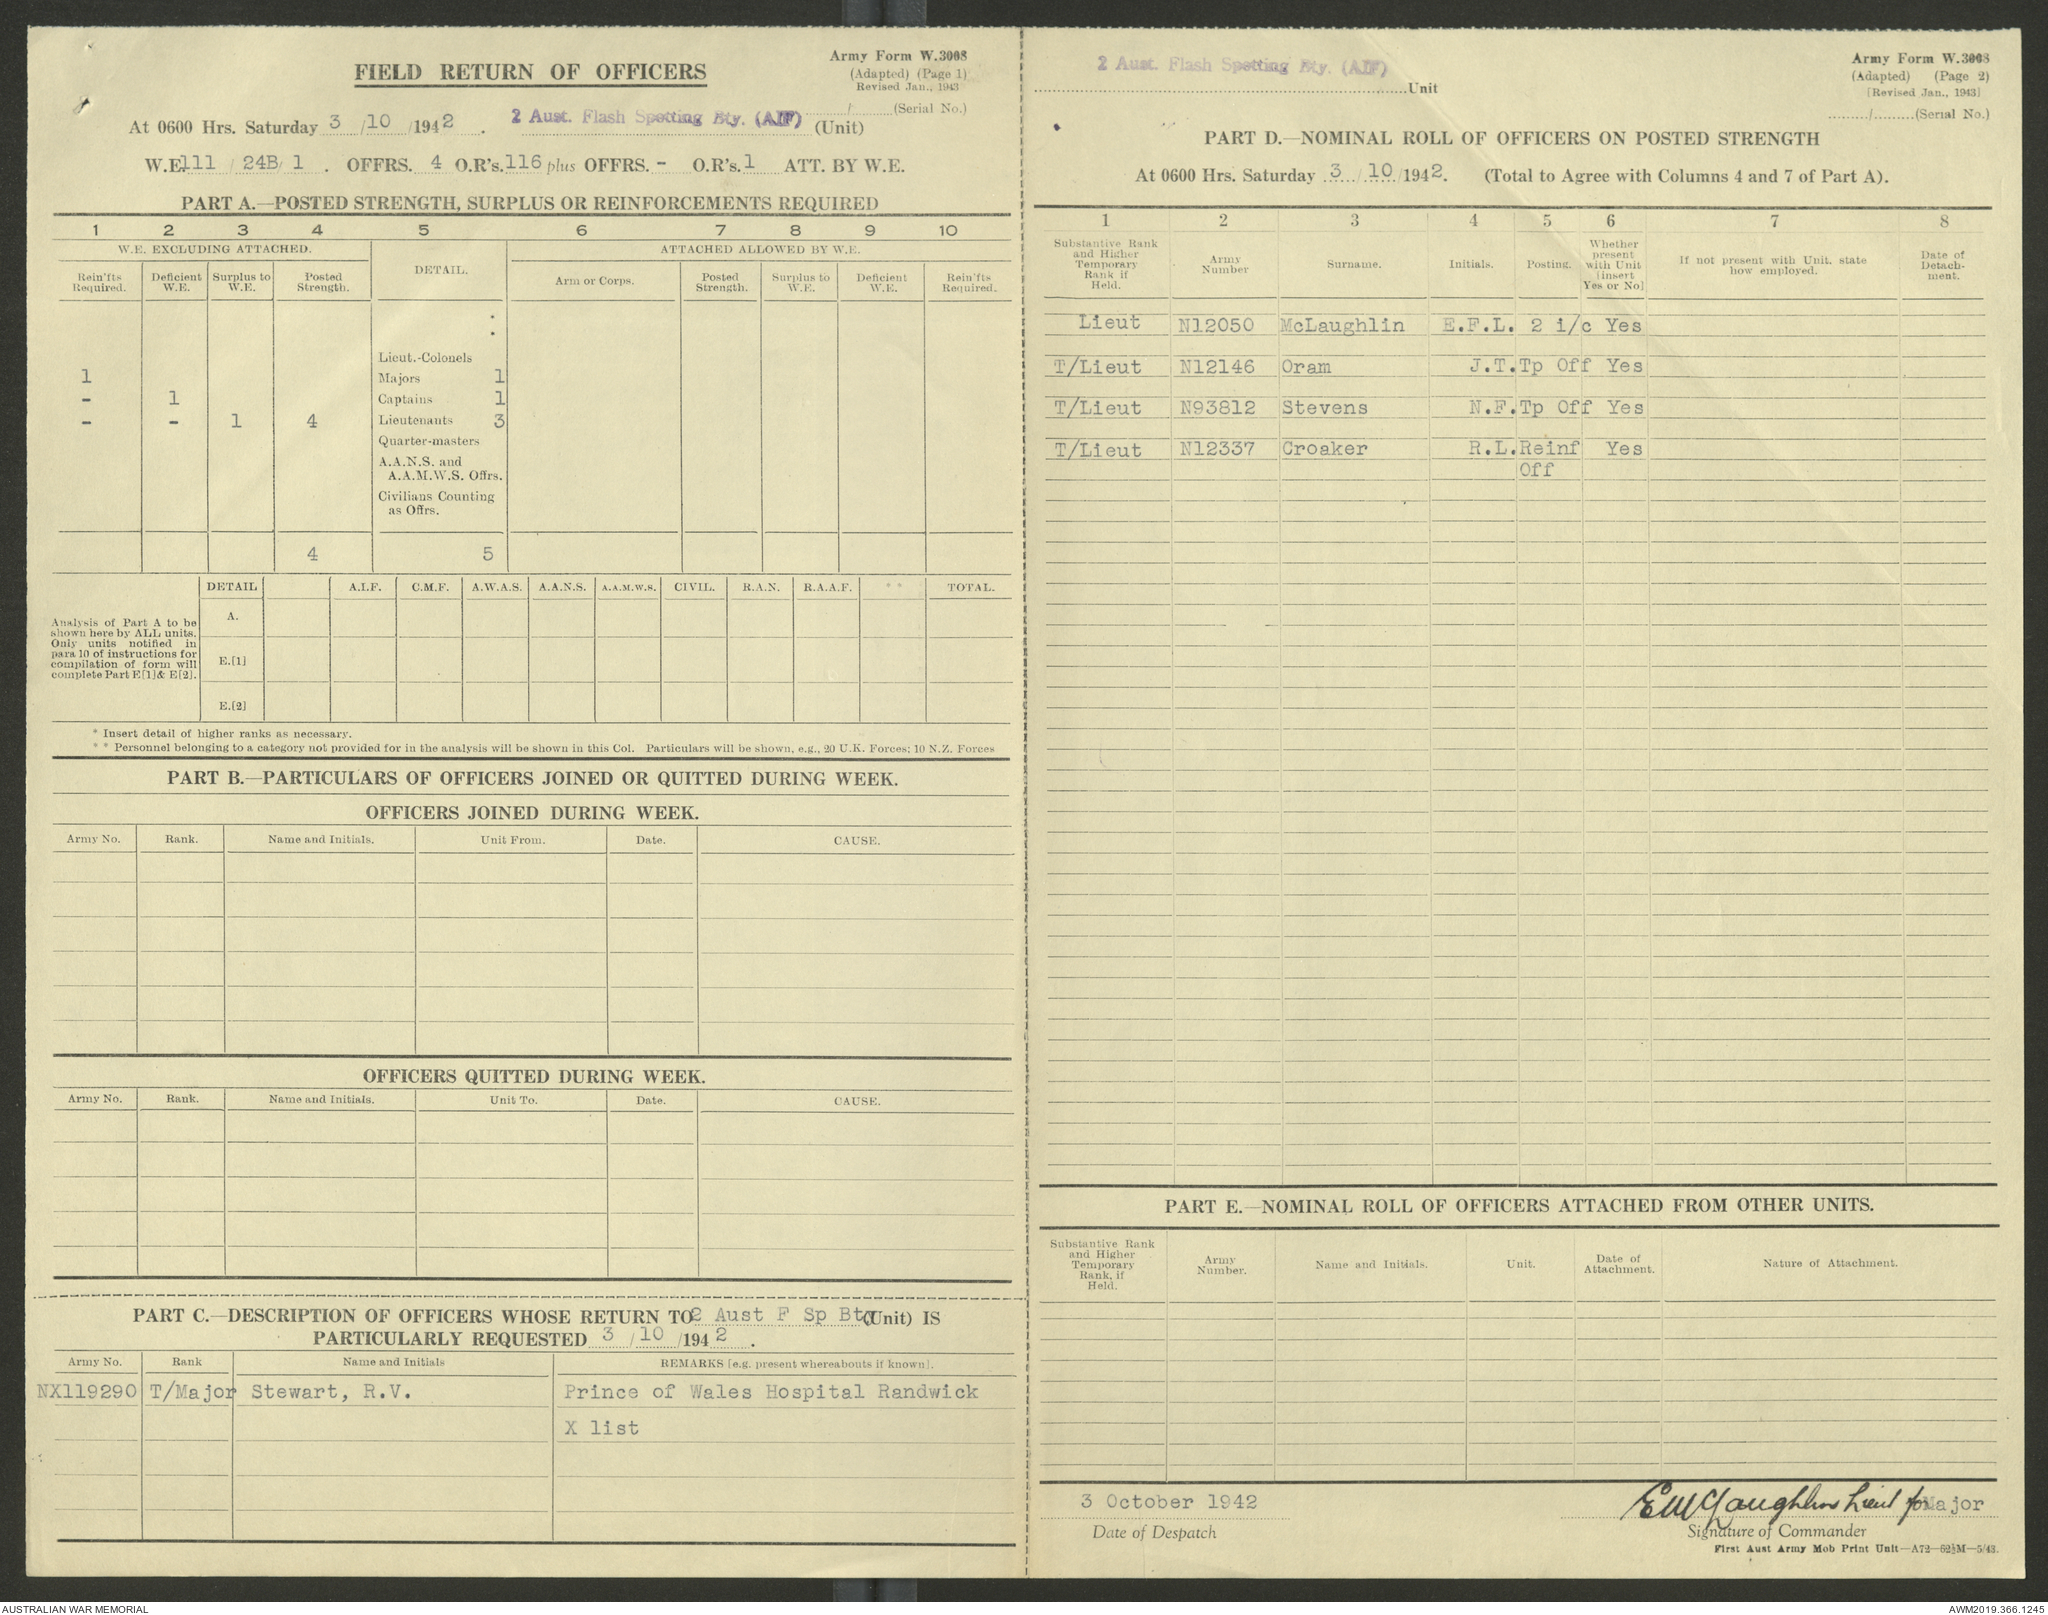 Army Form W.3008
FIELD RETURN OF OFFICERS
(Adapted) (Page 1)
Revised Jan., 1943
....../......(Serial No.)
At 0600 Hrs. Saturday 3 /10 /1942 . 2 Aust. Flash Spotting Bty. (AIF) (Unit)
W.E. 111 / 24B/ 1 . OFFRS. 4 O.R's. 116 plus OFFRS. - O.R's. 1 ATT. BY W.E.
PART A.—POSTED STRENGTH, SURPLUS OR REINFORCEMENTS REQUIRED
1 2 3 4 5 6 7 8 9 10
W.E. EXCLUDING ATTACHED. DETAIL. ATTACHED ALLOWED BY W.E.
Rein'fts Required. Deficient W.E. Surplus to W.E. Posted Strength. Arm or Corps. Posted Strength. Surplus to W.E. Deficient W.E. Rein'fts Required.
Lieut.-Colonels
1 Majors 1
- 1 Captains 1
- - 1 4 Lieutenants 3
Quarter-masters
A.A.N.S. and
A.A.M.W.S. Offrs.
Civilians Counting
as Offrs.
4 5
DETAIL A.I.F. C.M.F. A.W.A.S. A.A.N.S. A.A.M.W.S. CIVIL. R.A.N. R.A.A.F. * * TOTAL.
Analysis of Part A to be
shown here by ALL units.
Only units notified in
para 10 of instructions for
compilation of form will
complete Part E[1]& E[2].
A.
E.[1]
E.[2]
* Insert detail of higher ranks as necessary.
* * Personnel belonging to a category not provided for in the analysis will be shown in this Col. Particulars will be shown, e.g., 20 U.K. Forces; 10 N.Z. Forces
PART B.—PARTICULARS OF OFFICERS JOINED OR QUITTED DURING WEEK.
OFFICERS JOINED DURING WEEK.
Army No. Rank. Name and Initials. Unit From. Date. CAUSE.
OFFICERS QUITTED DURING WEEK.
Army No. Rank. Name and Initials. Unit To. Date. CAUSE.
PART C.—DESCRIPTION OF OFFICERS WHOSE RETURN TO 2 Aust F Sp Bty (Unit) IS
PARTICULARLY REQUESTED 3 /10 /1942 .
Army No. Rank Name and Initials REMARKS [e.g. present whereabouts if known].
NX119290 T/Major Stewart, R.V. Prince of Wales Hospital Randwick
X list
2 Aust. Flash Spotting Bty. (AIF) Unit
Army Form W.3008
(Adapted) (Page 2)
[Revised Jan., 1943]
......../.........(Serial No.)
PART D.—NOMINAL ROLL OF OFFICERS ON POSTED STRENGTH
At 0600 Hrs. Saturday 3 / 10 /1942. (Total to Agree with Columns 4 and 7 of Part A).
1 2 3 4 5 6 7 8
Substantive Rank and Higher Temporary Rank if Held. Army Number Surname. Initials. Posting. Whether present with Unit [insert Yes or No] If not present with Unit. state how employed. Date of Detach- ment.
Lieut N12050 McLaughlin E.F.L. 2 i/c Yes
T/Lieut N12146 Oram J.T. Tp Off Yes
T/Lieut N93812 Stevens N.F. Tp Off Yes
T/Lieut N12337 Croaker R.L. Reinf Yes
Off
PART E.—NOMINAL ROLL OF OFFICERS ATTACHED FROM OTHER UNITS.
Substantive Rank and Higher Temporary Rank, if Held. Army Number. Name and Initials. Unit. Date of Attachment. Nature of Attachment.
3 October 1942
Date of Despatch
EMcLaughlin Lieut for Major
Signature of Commander
First Aust Army Mob Print Unit—A72—62½M—5/43.
AUSTRALIAN WAR MEMORIAL
AWM2019.366.1245